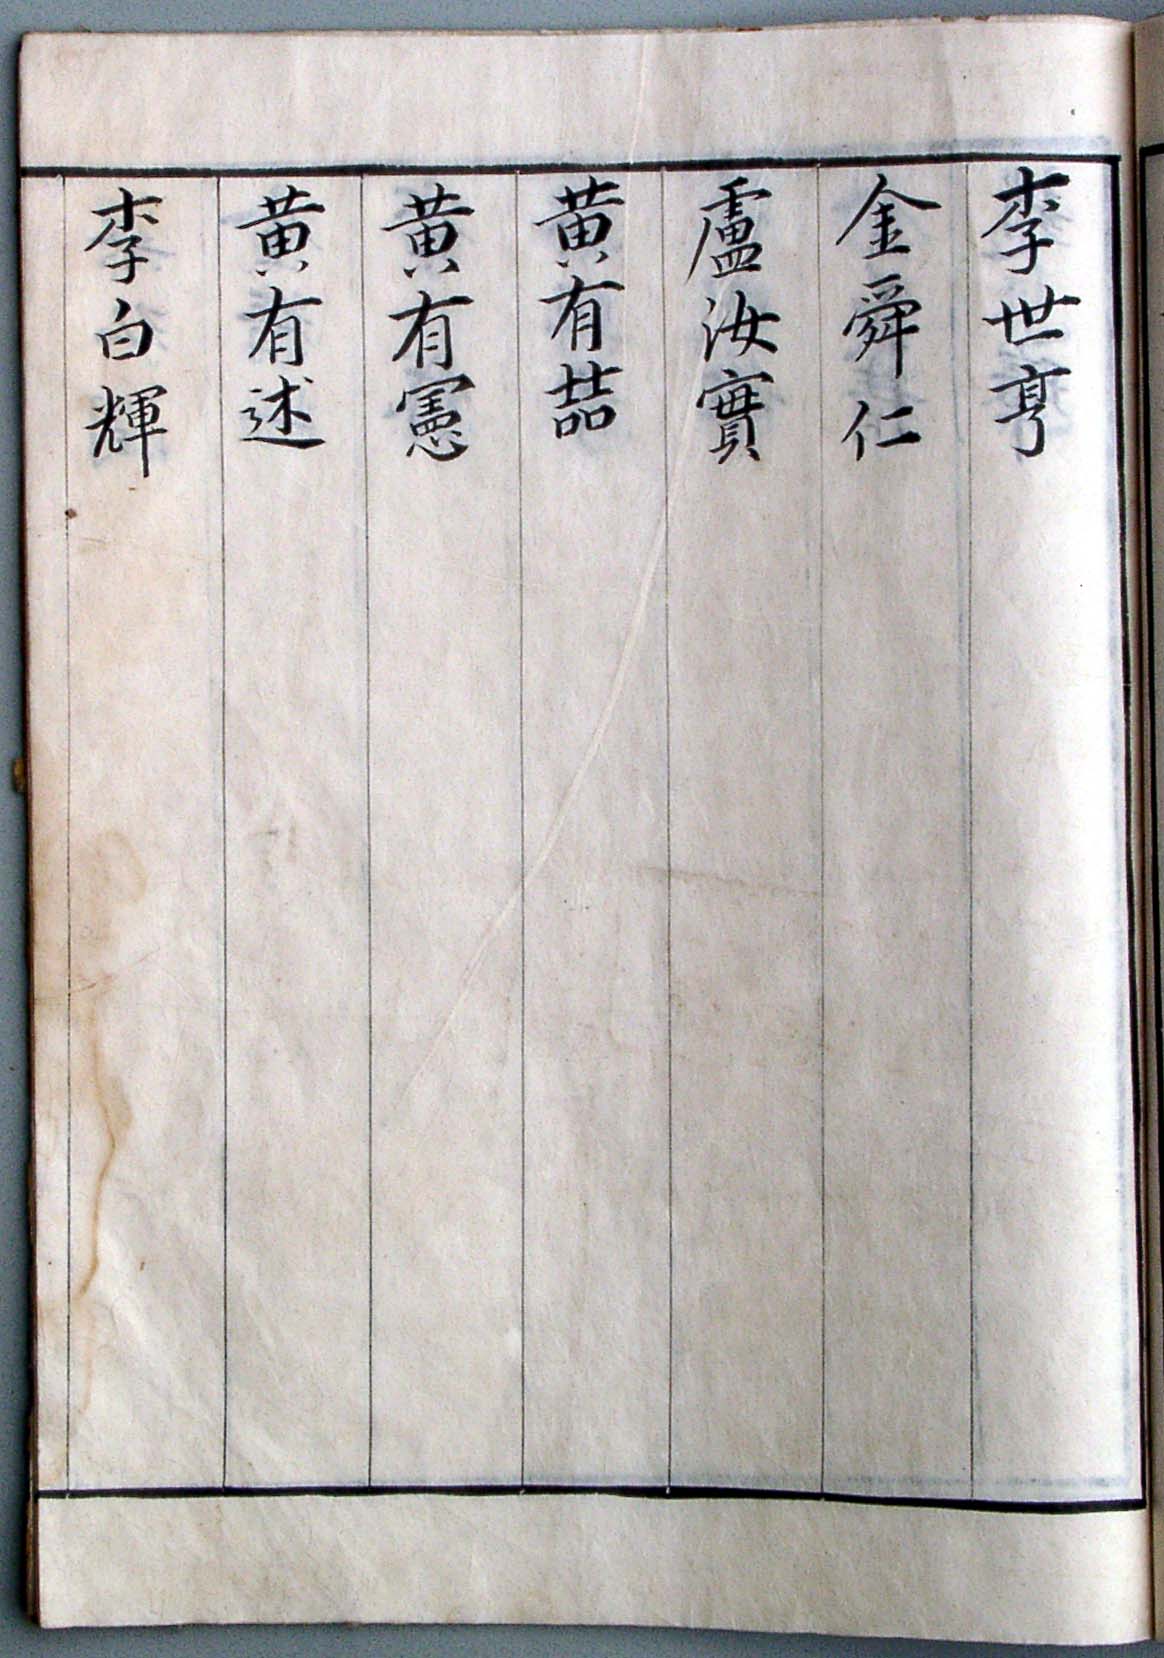 李世亨
金舜仁
盧汝實
黄有喆
黄有憲
黄有述
李白輝